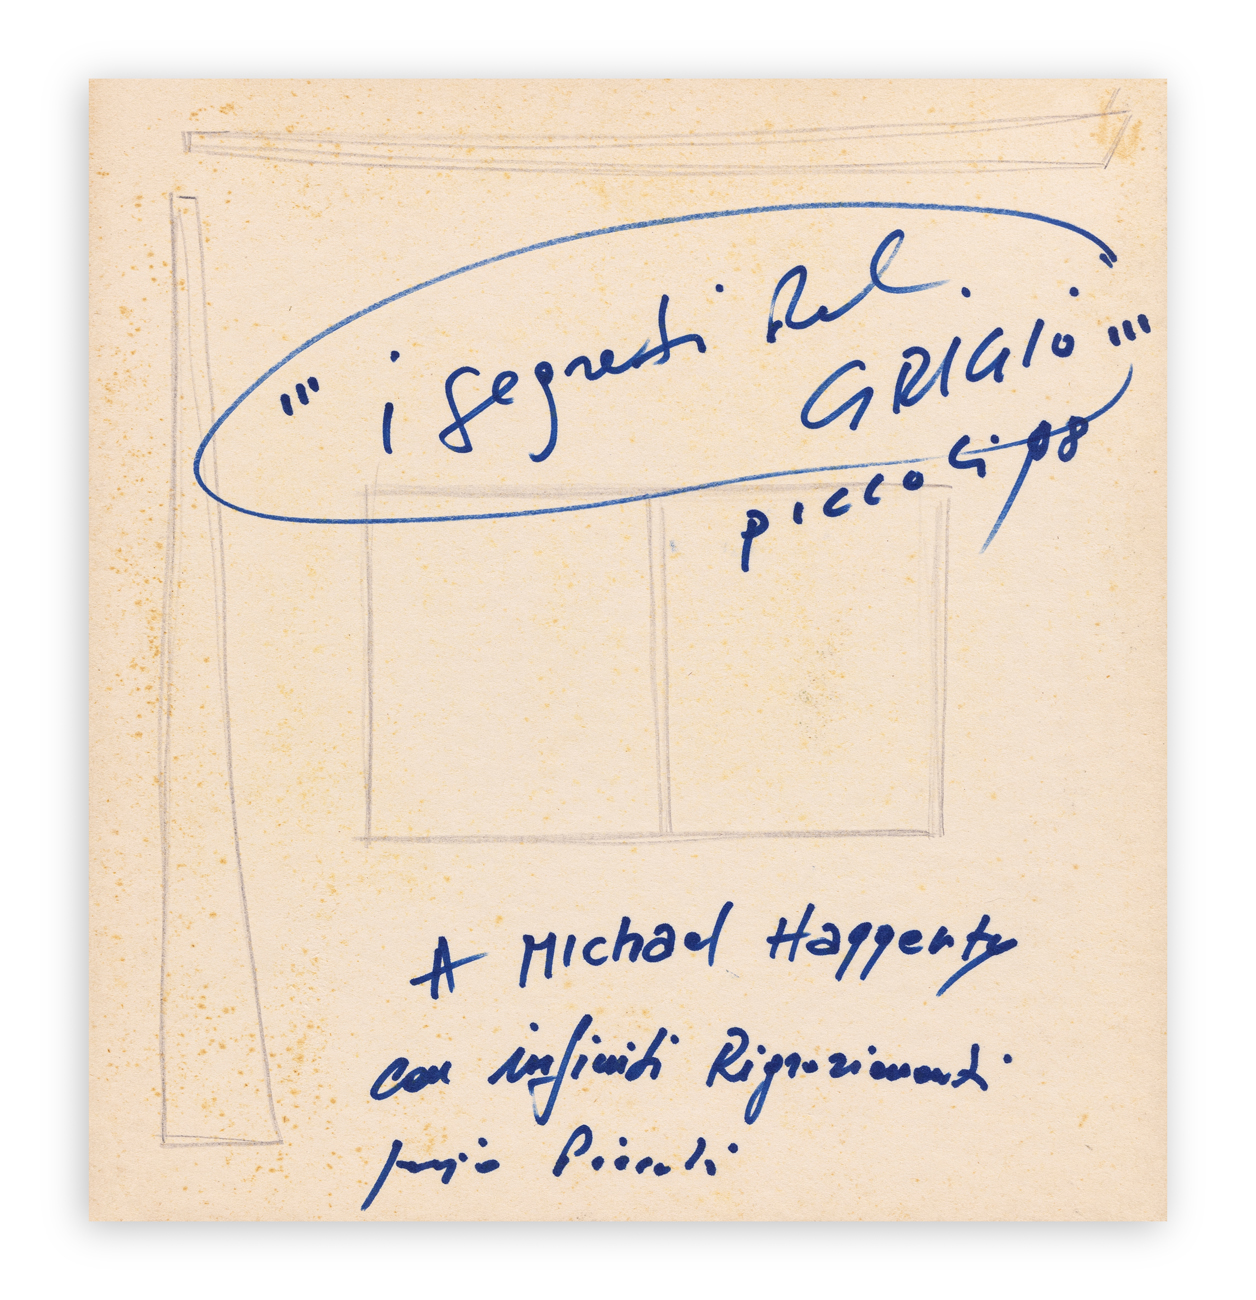 "' i segreti del
GRIGIO "'
piccoli 98
A Michael Haggerty
con infiniti Rigraziamenti
Piccoli